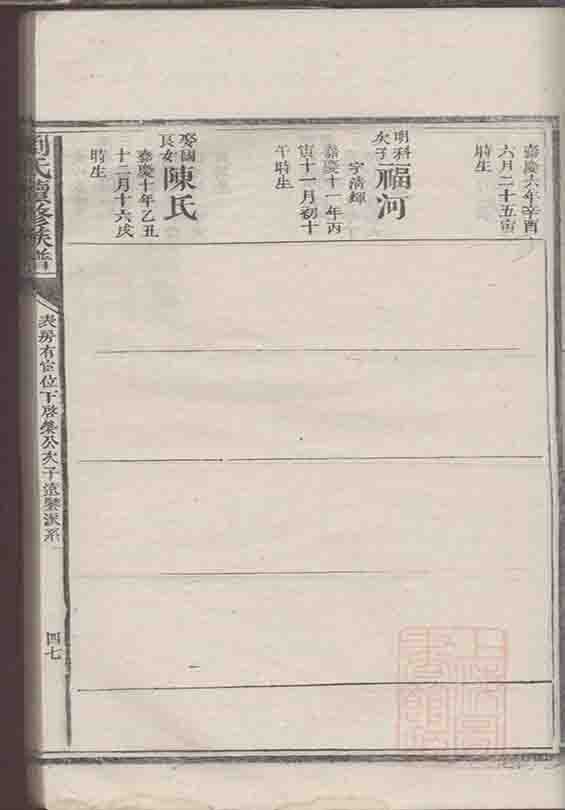 嘉慶六年辛酉
六月二十五寅
時生
明科
次子
福河
字清輝
嘉慶十一年丙
寅十一月初十
午時生
娶國
長女
陳氏
嘉慶十年乙丑
十二月十六戌
時生
劉氏續修族譜
表房有宦位下啓榮公次子遠鑒派系
四七